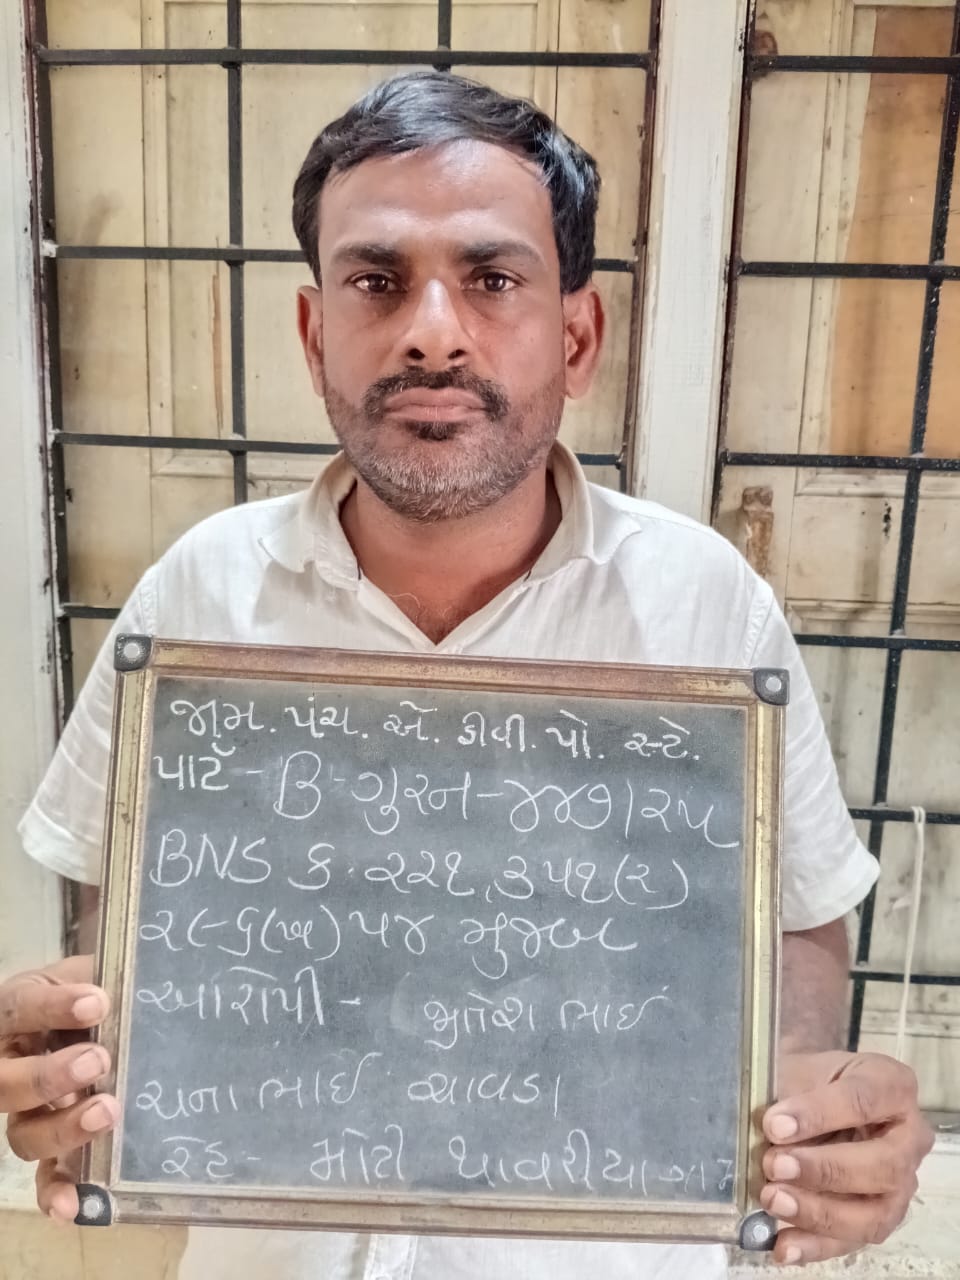 જામ. પંચ. એ. ડીવી. પો. સ્ટે.
પાર્ટ - B - ગુરન - ૪૪૭/૨૫
BNS ક. ૨૨૧, ૩૫૧(૨)
૨૯૬(ખ) પજ મુજબ
આરોપી - જીતેશ ભાઈ
ચના ભાઈ ચાવડા
રહ - મોટી થાવરીયા ગામ